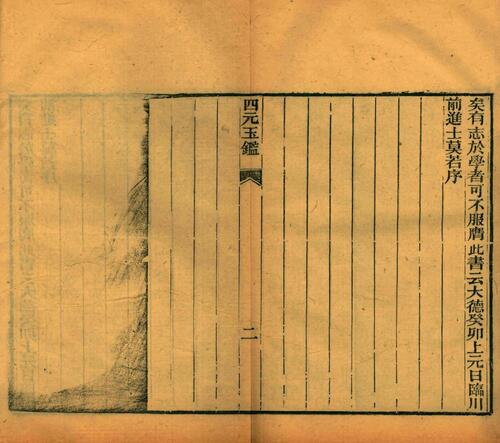 矣有志於學者可不服膺此書云大德癸卯上元日臨川
前進士莫若序
四元玉鑑
二